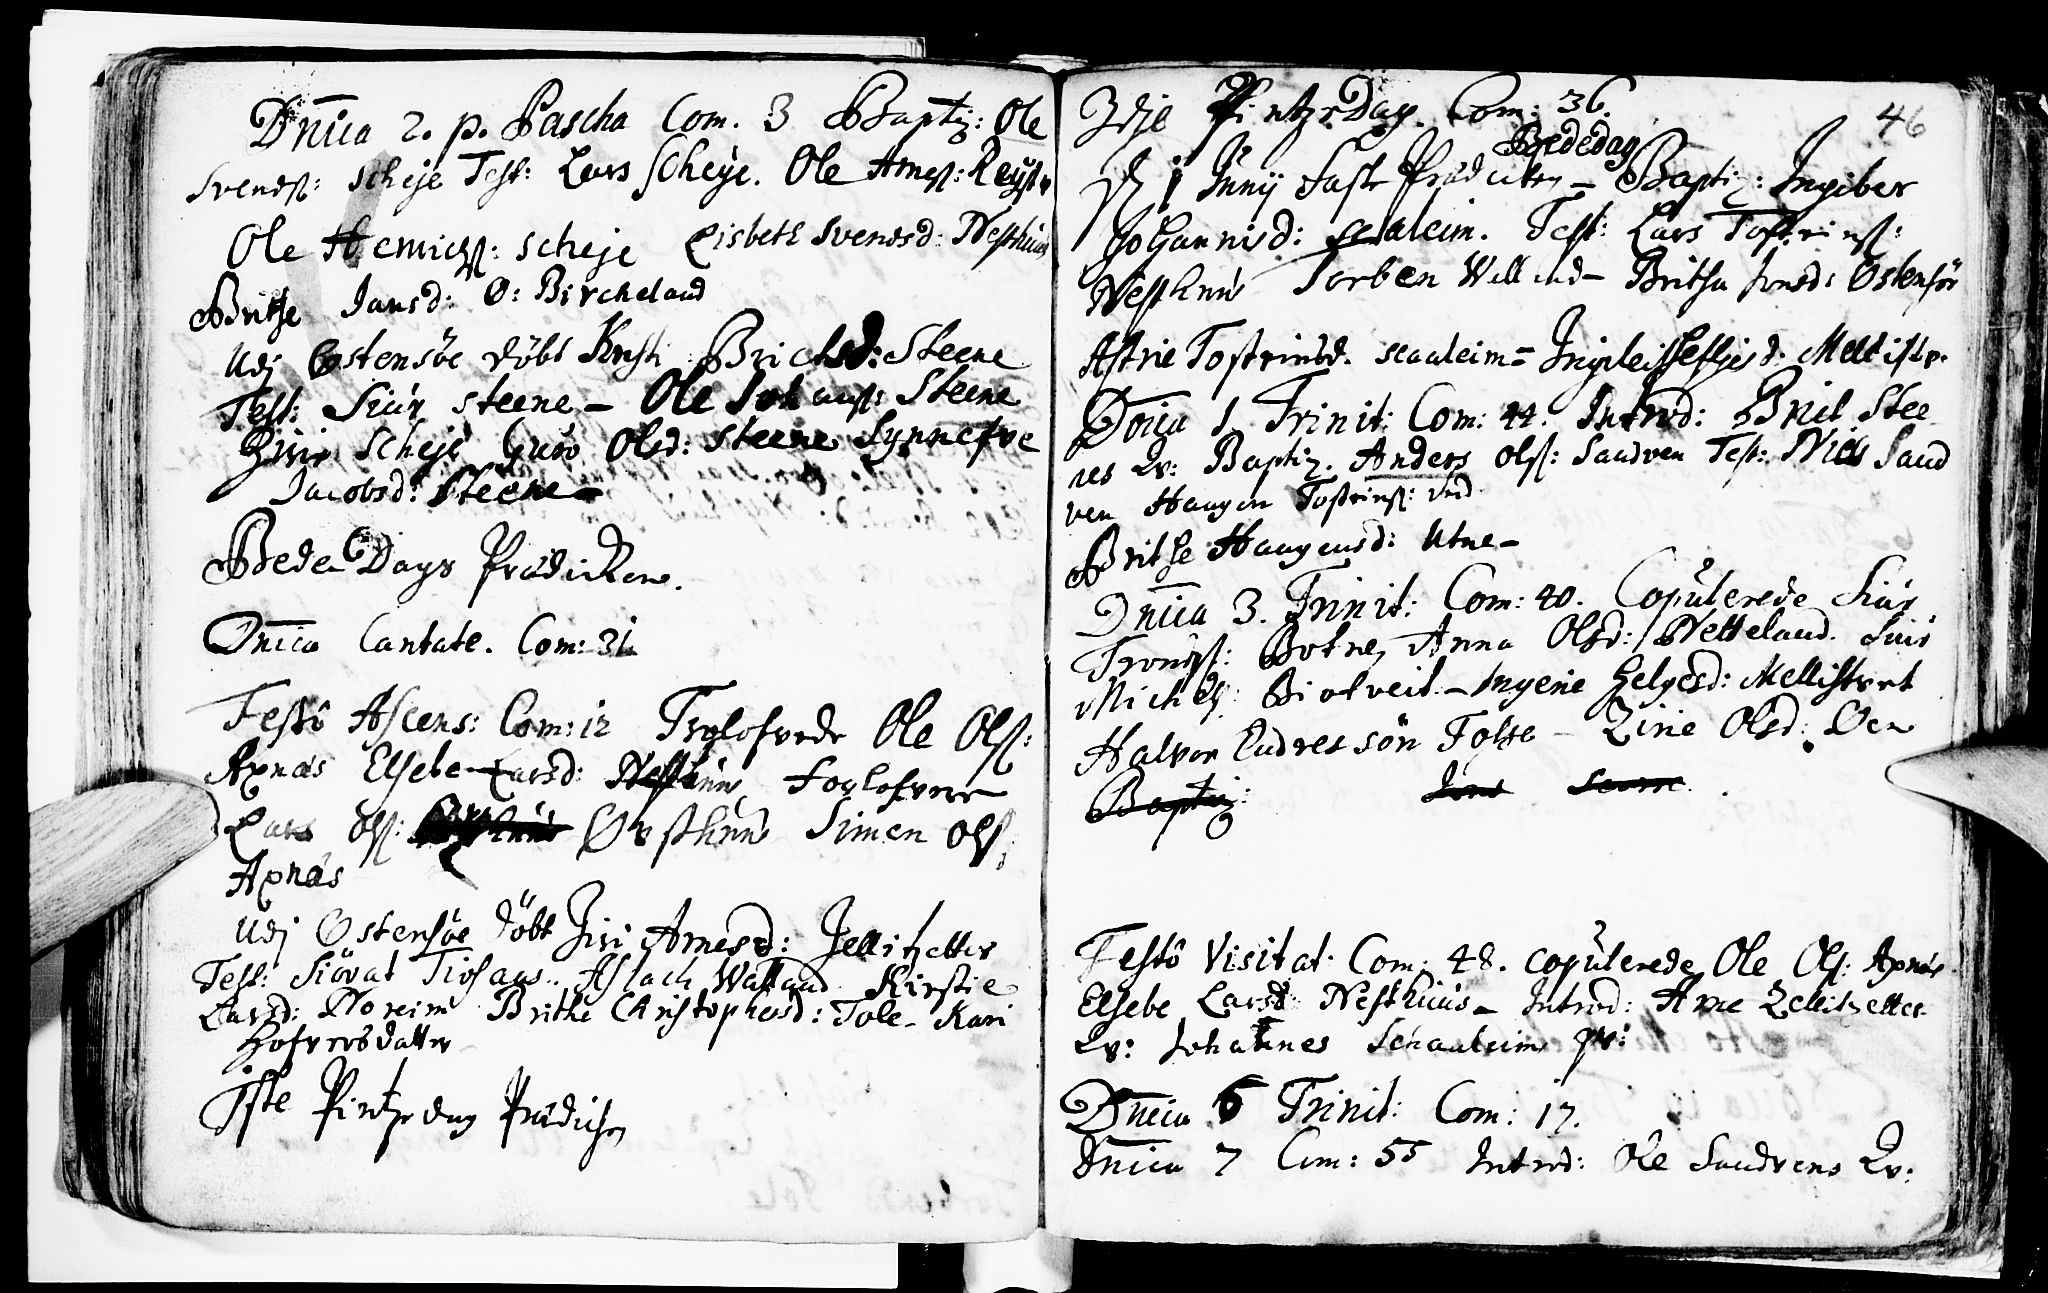 Dnica 2. p. Pascha Com. 3 Baptiz: Ole
Svends: Scheje Test: Lars Scheje. Ole Arnes:
Ole Henrichs: Scheje Lisbeth Svendsd: Nesthuus
Brithe Jansd: Ø: Bircheland
Udj Ostensöe döbt Kirsti Brichsd: Steene
Test: Siur Steene - Ole Johans: Steene
Zirie Scheje Guro Olsd: Steene Synnefve
Jacobsd: Steene -
Bede Dags Prædicken.
Dnica Cantate. Com: 31
Festô Ascens: Com: 12 Trolofvede Ole Ols:
Axnæs Elsebe Larsd: Nesthuus Forlofvere
Lars Ols: Ørsthuus Simen Ols:
Axnæs
Udj Ostensöe döbt Ziri Arnesd: Zellitzetter
Test: Siövat Aslach Walland Kirstie
Larsd: Noreim Brithe Christophersd: Tole - Kari
Hofversdatter
Iste Pintze dag Prædichen
2dje Pintze Dag. Com: 36. 46
Bededag
D 1 Junij Faste Prædicken - Baptiz: Ingeber
Johannisd: Scaaleim. Test: Lars Tostens:
Nesthuus Torben Walland - Britha Jonsd: Ostensöe
Astrie Tostensd. Scaaleim = Mellistr.
Dnica 1. Trinit: Com: 44. Introd: Brit Stee
nes Qv: Baptiz. Anders Ols: Sandven Test: Niels Sand
ven Haagen Tostens: Ved
Brithe Haagensd: Utne -
Dnica 3. Trinit: Com: 40. Copulerede Siur
Tronds: Botne, Anna Olsd: Netteland. Siur
Michels: Biotveit - Ingerie Helgesd: Mellistret
Halvor Endresön Tolse - Zirie Olsd: Øen
Baptiz:
Festô Visitat: Com: 48. Copulerede Ole Ols: Axnæs
Elsebe Larsd: Nesthuus - Introd: Arne Zellitzetter
Qv: Johannes Schaaleim qv:
Dnica 6 Trinit: Com: 17.
Dnica 7 Com: 55 Introd: Ole Sandvens Qv: